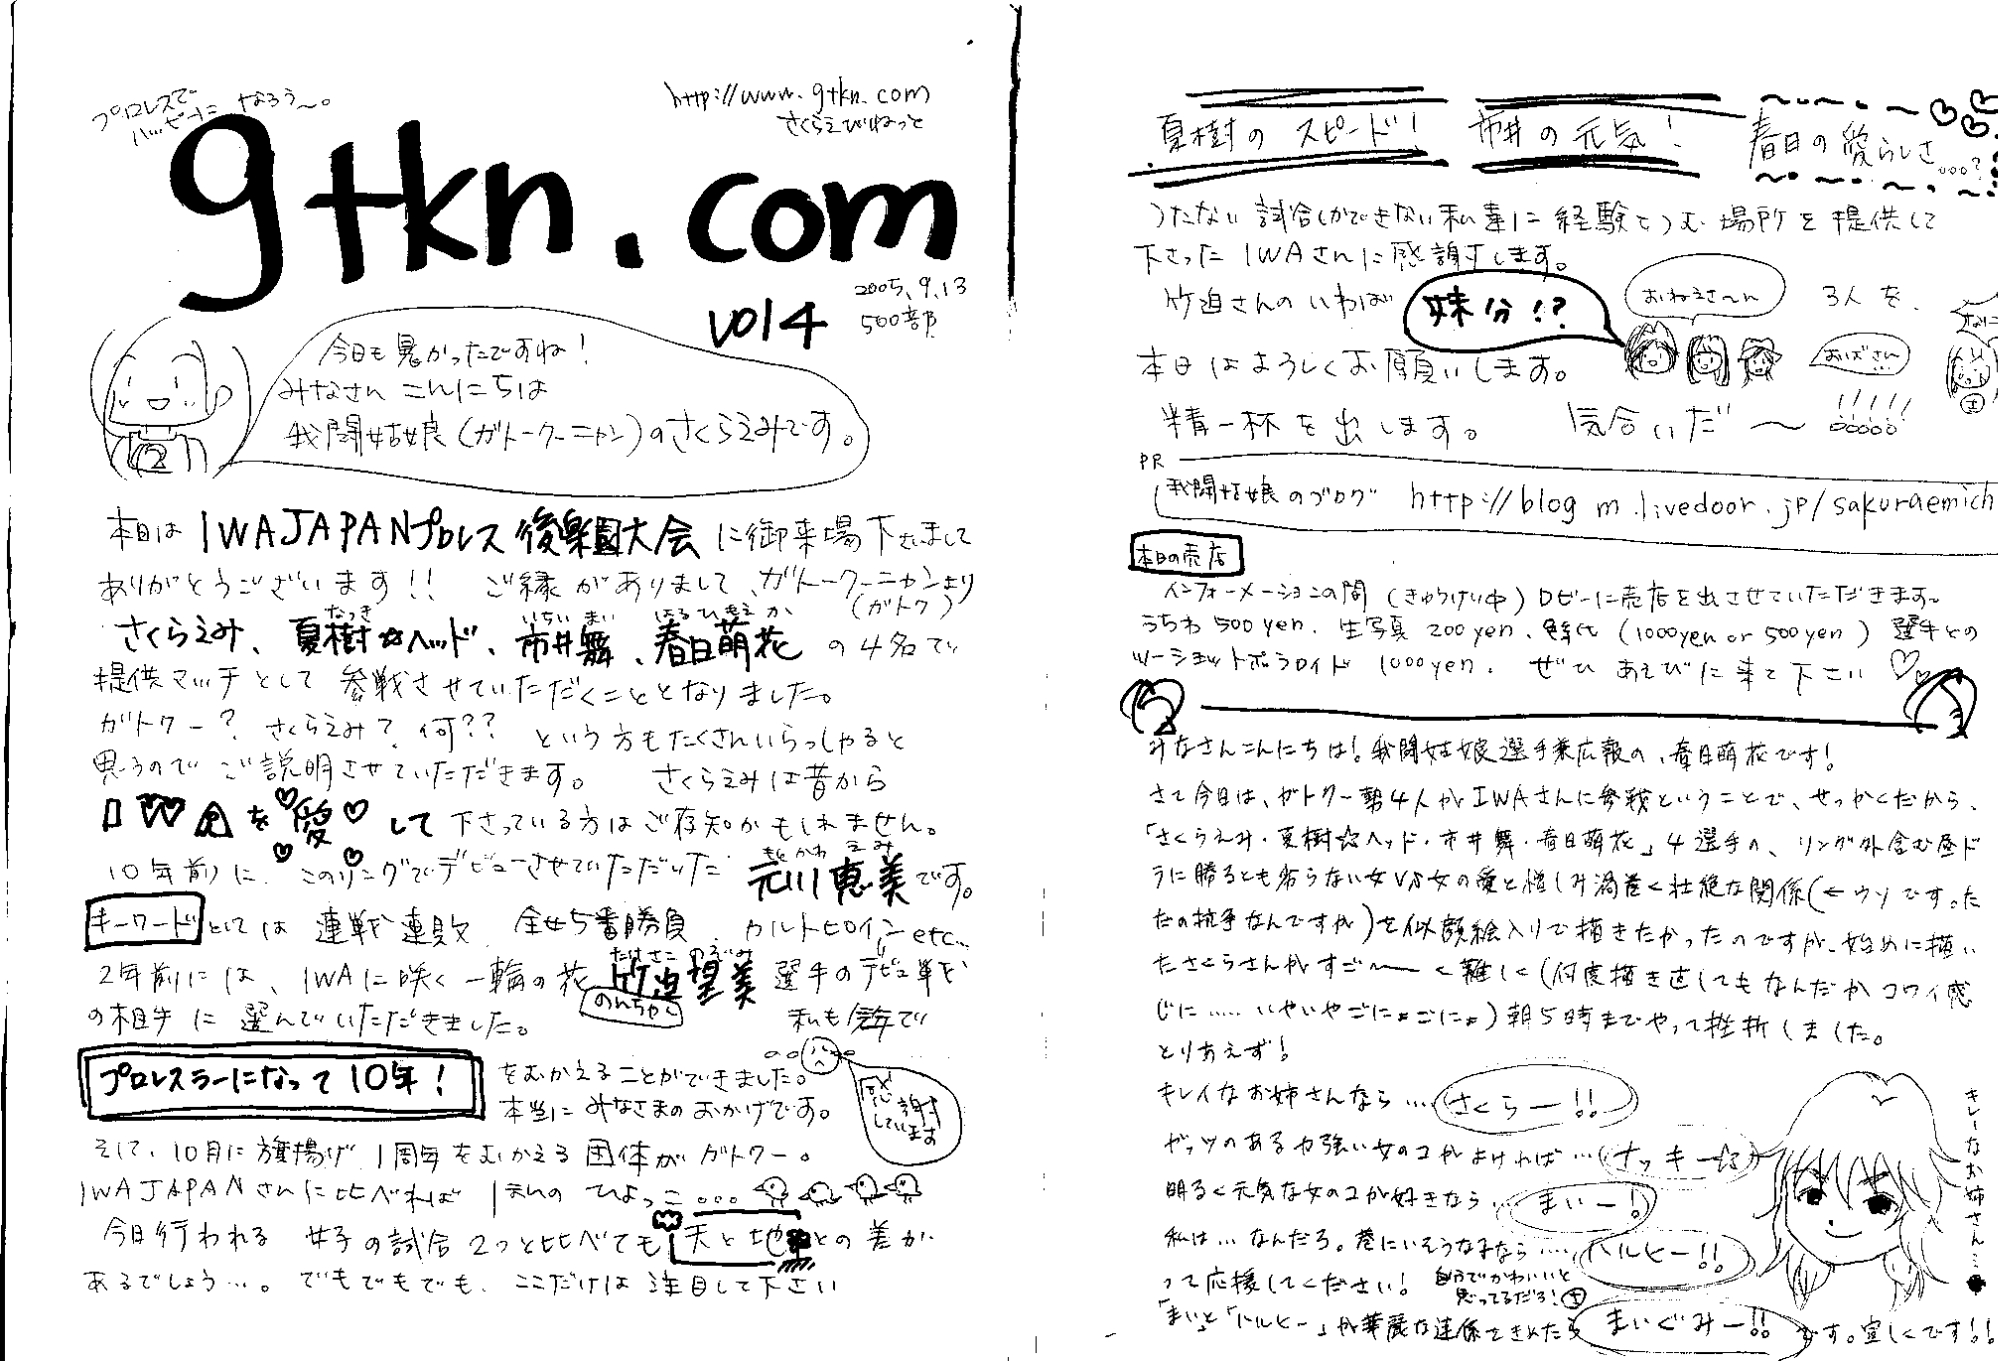 プロレスで
ハッピーになろう〜。
http://www.gtkn.com
さくらえびねっと
gtkn.com
vol4
2005.9.13
500部
今日も暑かったですね！
みなさん こんにちは
我闘姑娘(ガトークーニャン)のさくらえみです。
本日は IWAJAPANプロレス 後楽園大会 に御来場下さいまして
ありがとうございます！！ ご縁がありまして、ガトークーニャンより
(ガトク)
なつき いちい まい はるひ もえか
さくらえみ、夏樹☆ヘッド、市井舞、春日萌花 の4名で
提供マッチとして 参戦させていただくこととなりました。
ガトクー？ さくらえみ？ 何？？ という方もたくさんいらっしゃると
思うので ご説明させていただきます。 さくらえみは昔から
IWAを愛して下さっている方はご存知かもしれません。
もとかわ えみ
10年前に このリングでデビューさせていただいた 元川恵美です。
キーワードとしては 連戦連敗 全女5番勝負 カルトヒロイン etc...
たけさこ のぞみ
2年前には、IWAに咲く一輪の花 竹迫望美 選手のデビュー戦を
のんちゃん
の相手に 選んでいただきました。 私も今年で
プロレスラーになって10年！
をむかえることができました。
本当に みなさまのおかげです。
感謝しています
そして、10月に旗揚げ1周年をむかえる団体がガトクー。
IWAJAPANさんに比べれば ほんの ひよっこ...
今日行われる 女子の試合2つと比べても 天と地 との差が
あるでしょう…。でもでもでも、ここだけは 注目して下さい
夏樹の スピード！ 市井の元気！ 春日の愛らしさ...？
つたない試合しかできない私達に 経験をつむ場所を提供して
下さった IWAさんに感謝します。
竹迫さんのいわば 妹分!? おねえさ〜ん 3人を、
おばさん…
本日はよろしくお願いします。
精一杯を出します。 気合いだ〜!!!!!
PR
我闘姑娘のブログ http://blog m.livedoor.jp/sakuraemich
本日の売店
インフォーメーションの間 (きゅうけい中) ロビーに売店を出させていただきます〜
うちわ 500yen. 生写真 200yen. (1000yen or 500yen) 選手との
ツーショットポラロイド 1000yen. ぜひ あそびに来て下さい♡
みなさんこんにちは！我闘姑娘選手兼広報の、春日萌花です！
さて今日は、ガトクー勢4人がIWAさんに参戦ということで、せっかくだから、
「さくらえみ・夏樹☆ヘッド・市井舞・春日萌花」4選手の、リング外含む昼ド
ラに勝るとも劣らない女VS女の愛と憎しみ渦巻く壮絶な関係(←ウソです。た
だの抗争なんですが)を似顔絵入りで描きたかったのですが、始めに描い
たさくらさんがすご〜く難しく(何度描き直してもなんだかコワイ感
じに……いやいやごにょごにょ)朝5時までやって挫折しました。
とりあえず！
キレイなお姉さんなら…さくらー!!
ガッツのある力強い女のコがよければ…ナッキー☆
明るく元気な女のコが好きなら… まいー！
私は…なんだろ。巷にいそうな子なら…… ハルヒー!!
って応援してください！ 自分でかわいいと
思ってるだろ！
「まい」と「ハルヒー」が華麗な連係をきめたら まいぐみー!! です。宜しくです!!
キレーなお姉さん…